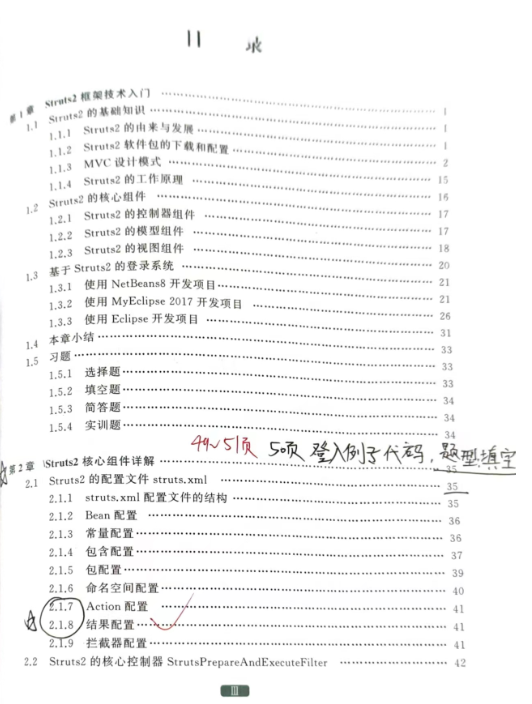 目 录
第1章 Struts2 框架技术入门 …… 1
1.1 Struts2 的基础知识 …… 1
1.1.1 Struts2 的由来与发展 …… 1
1.1.2 Struts2 软件包的下载和配置 …… 2
1.1.3 MVC 设计模式 …… 15
1.1.4 Struts2 的工作原理 …… 16
1.2 Struts2 的核心组件 …… 17
1.2.1 Struts2 的控制器组件 …… 17
1.2.2 Struts2 的模型组件 …… 18
1.2.3 Struts2 的视图组件 …… 20
1.3 基于 Struts2 的登录系统 …… 21
1.3.1 使用 NetBeans8 开发项目 …… 21
1.3.2 使用 MyEclipse 2017 开发项目 …… 26
1.3.3 使用 Eclipse 开发项目 …… 31
1.4 本章小结 …… 33
1.5 习题 …… 33
1.5.1 选择题 …… 33
1.5.2 填空题 …… 34
1.5.3 简答题 …… 34
1.5.4 实训题 …… 34
49~51页 50页 登入例子代码，题型填空
第2章 Struts2 核心组件详解 …… 35
2.1 Struts2 的配置文件 struts.xml …… 35
2.1.1 struts.xml 配置文件的结构 …… 35
2.1.2 Bean 配置 …… 36
2.1.3 常量配置 …… 36
2.1.4 包含配置 …… 37
2.1.5 包配置 …… 39
2.1.6 命名空间配置 …… 40
2.1.7 Action 配置 …… 41
2.1.8 结果配置 …… 41
2.1.9 拦截器配置 …… 41
2.2 Struts2 的核心控制器 StrutsPrepareAndExecuteFilter …… 42
Ⅲ